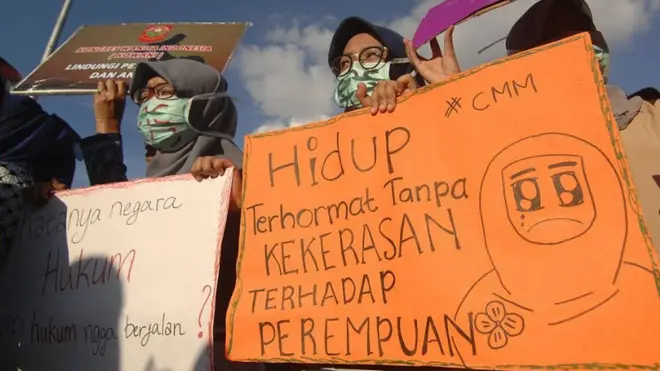 KONGRES WANITA INDONESIA
(KOWANI)
LINDUNGI
DAN
Katanya negara
Hukum
hukum ngga berjalan
?
#CMM
Hidup
Terhormat Tanpa
KEKERASAN
TERHADAP
PEREMPUAN